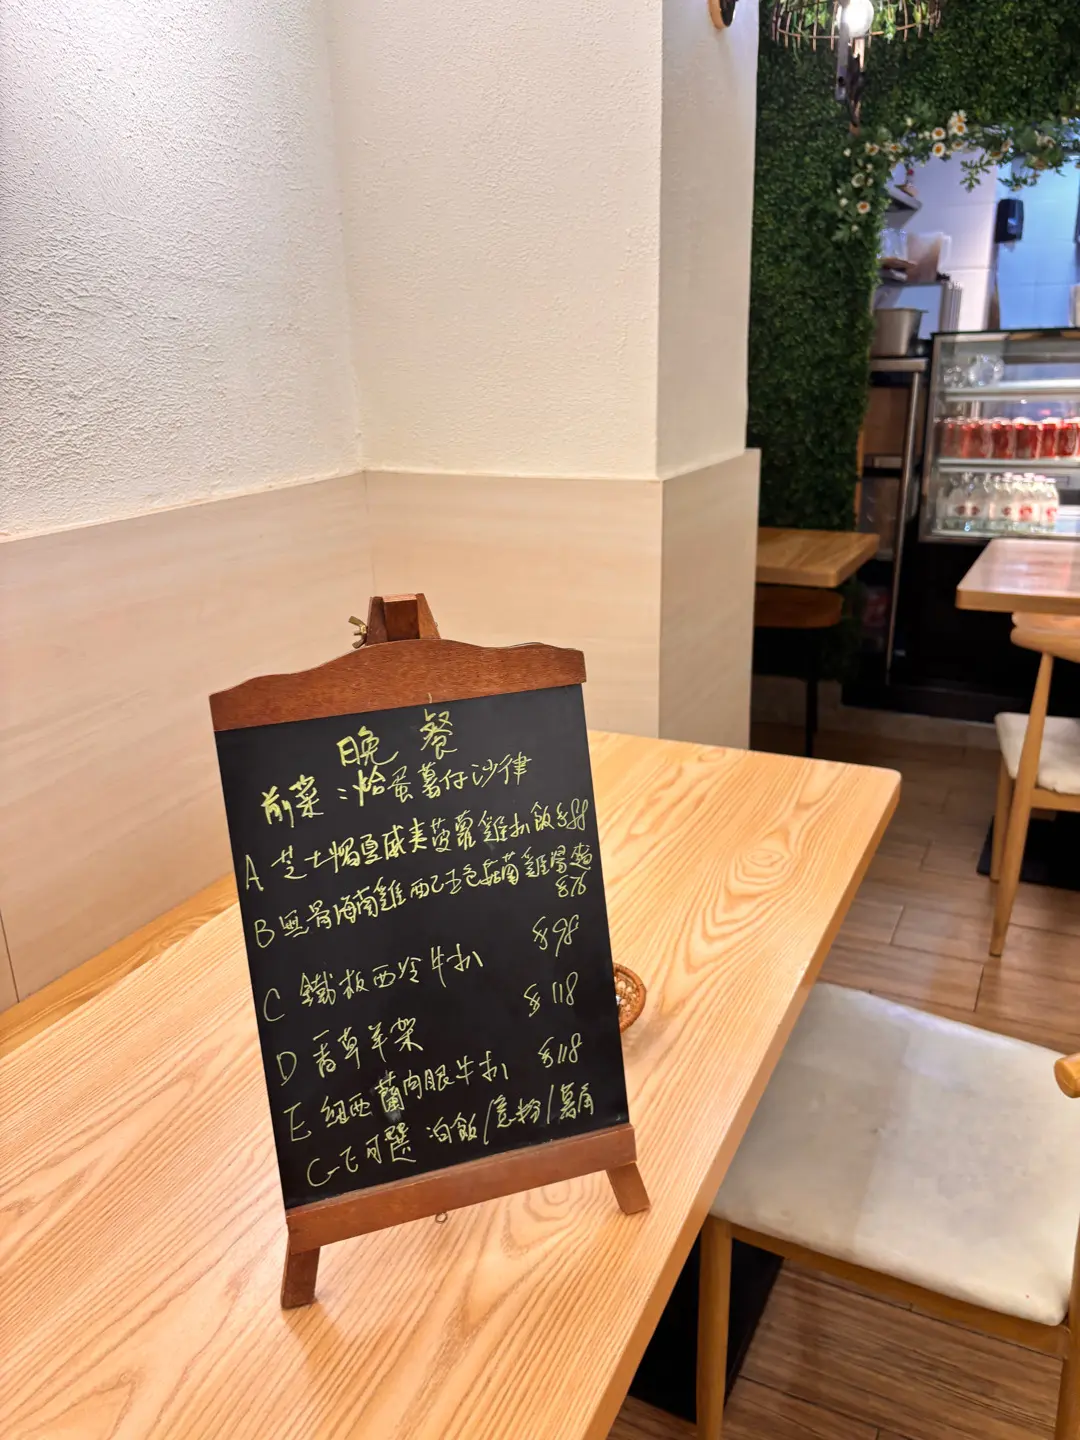 晚餐
前菜：烚蛋薯仔沙律
A 芝士焗夏威夷菠蘿雞扒飯 $88
B 無骨海南雞配己五色菇菌雞湯麵
$92
C 鐵板西冷牛扒 $98
D 香草羊架 $118
E 紐西蘭肉眼牛扒 $118
C-E可選 白飯/意粉/薯角